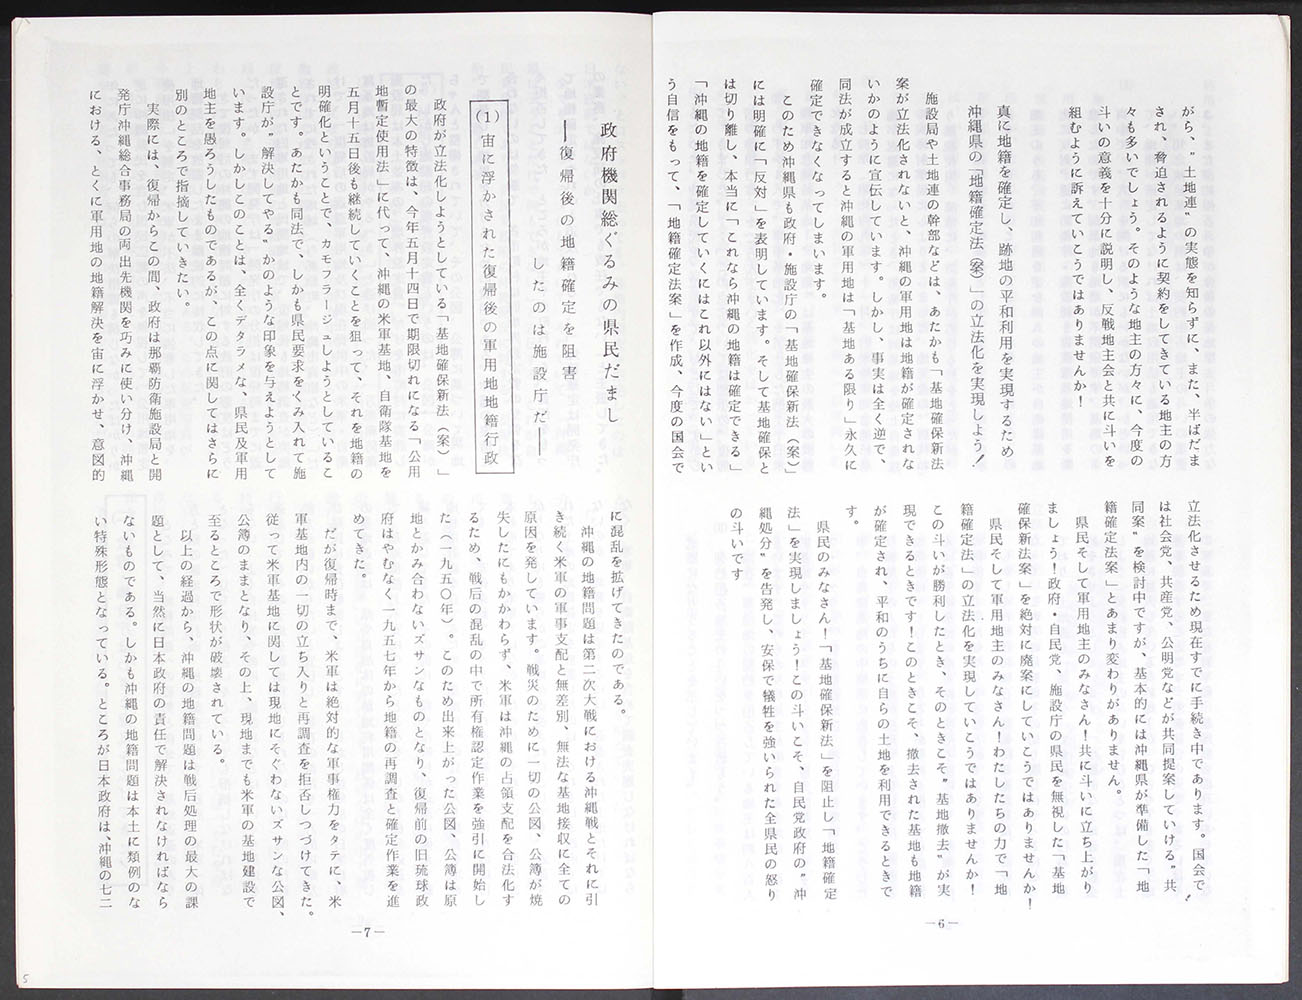 がら、"土地連"の実態を知らずに、また、半ばだま
され、脅迫されるように契約をしてきている地主の方
々も多いでしょう。そのような地主の方々に、今度の
斗いの意義を十分に説明し、反戦地主会と共に斗いを
組むように訴えていこうではありませんか！
真に地籍を確定し、跡地の平和利用を実現するため
沖縄県の「地籍確定法(案)」の立法化を実現しよう！
施設局や土地連の幹部などは、あたかも「基地確保新法
案が立法化されないと、沖縄の軍用地は地籍が確定されな
いかのように宣伝しています。しかし、事実は全く逆で、
同法が成立すると沖縄の軍用地は「基地ある限り」永久に
確定できなくなってしまいます。
このため沖縄県も政府・施設庁の「基地確保新法(案)」
には明確に「反対」を表明しています。そして基地確保と
は切り離し、本当に「これなら沖縄の地籍は確定できる」
「沖縄の地籍を確定していくにはこれ以外にはない」とい
う自信をもって、「地籍確定法案」を作成、今度の国会で
立法化させるため現在すでに手続き中であります。国会で
は社会党、共産党、公明党などが共同提案していける"共
同案"を検討中ですが、基本的には沖縄県が準備した「地
籍確定法案」とあまり変わりがありません。
県民そして軍用地主のみなさん！共に斗いに立ち上がり
ましょう！政府・自民党、施設庁の県民を無視した「基地
確保新法案」を絶対に廃案にしていこうではありませんか！
県民そして軍用地主のみなさん！わたしたちの力で「地
籍確定法」の立法化を実現していこうではありませんか！
この斗いが勝利したとき、そのときこそ"基地撤去"が実
現できるときです！このときこそ、撤去された基地も地籍
が確定され、平和のうちに自らの土地を利用できるときで
す。
県民のみなさん！「基地確保新法」を阻止し「地籍確定
法」を実現しましょう！この斗いこそ、自民党政府の"沖
縄処分"を告発し、安保で犠牲を強いられた全県民の怒り
の斗いです！
—6—
政府機関総ぐるみの県民だまし
——復帰後の地籍確定を阻害
したのは施設庁だ——
(1) 宙に浮かされた復帰後の軍用地地籍行政
政府が立法化しようとしている「基地確保新法(案)」
の最大の特徴は、今年五月十四日で期限切れになる「公用
地暫定使用法」に代って、沖縄の米軍基地、自衛隊基地を
五月十五日後も継続していくことを狙って、それを地籍の
明確化ということで、カモフラージュしようとしているこ
とです。あたかも同法で、しかも県民要求をくみ入れて施
設庁が"解決してやる"かのような印象を与えようとして
います。しかしこのことは、全くデタラメな、県民及軍用
地主を愚ろうしたものであるが、この点に関してはさらに
別のところで指摘していきたい。
実際には、復帰からこの間、政府は那覇防衛施設局と開
発庁沖縄総合事務局の両出先機関を巧みに使い分け、沖縄
における、とくに軍用地の地籍解決を宙に浮かせ、意図的
に混乱を拡げてきたのである。
沖縄の地籍問題は第二次大戦における沖縄戦とそれに引
き続く米軍の軍事支配と無差別、無法な基地接収に全ての
原因を発しています。戦災のために一切の公図、公簿が焼
失したにもかかわらず、米軍は沖縄の占領支配を合法化す
るため、戦后の混乱の中で所有権認定作業を強引に開始し
た(一九五〇年)。このため出来上がった公図、公簿は原
地とかみ合わないズサンなものとなり、復帰前の旧琉球政
府はやむなく一九五七年から地籍の再調査と確定作業を進
めてきた。
だが復帰時まで、米軍は絶対的な軍事権力をタテに、米
軍基地内の一切の立ち入りと再調査を拒否しつづけてきた。
従って米軍基地に関しては現地にそぐわないズサンな公図、
公簿のままとなり、その上、現地までも米軍の基地建設で
至るところで形状が破壊されている。
以上の経過から、沖縄の地籍問題は戦后処理の最大の課
題として、当然に日本政府の責任で解決されなければなら
ないものである。しかも沖縄の地籍問題は本土に類例のな
い特殊形態となっている。ところが日本政府は、沖縄の七二
—7—
5